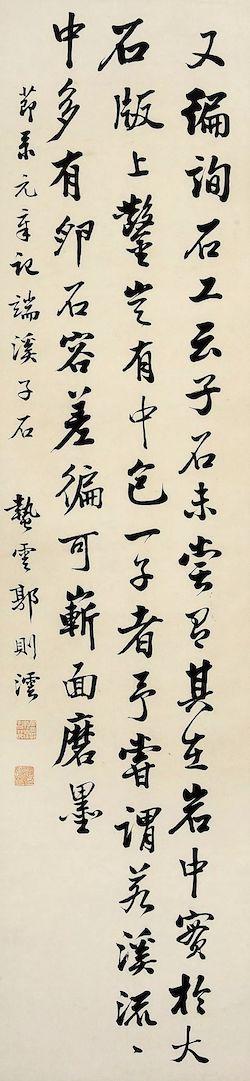 又徧詢石工云子石未嘗有其在岩中實於大
石版上鑿豈有中包一子者予嘗謂若溪流〻
中多有卵石容差徧可嶄面磨墨
節录元章記端溪子石 蟄雲郭則澐